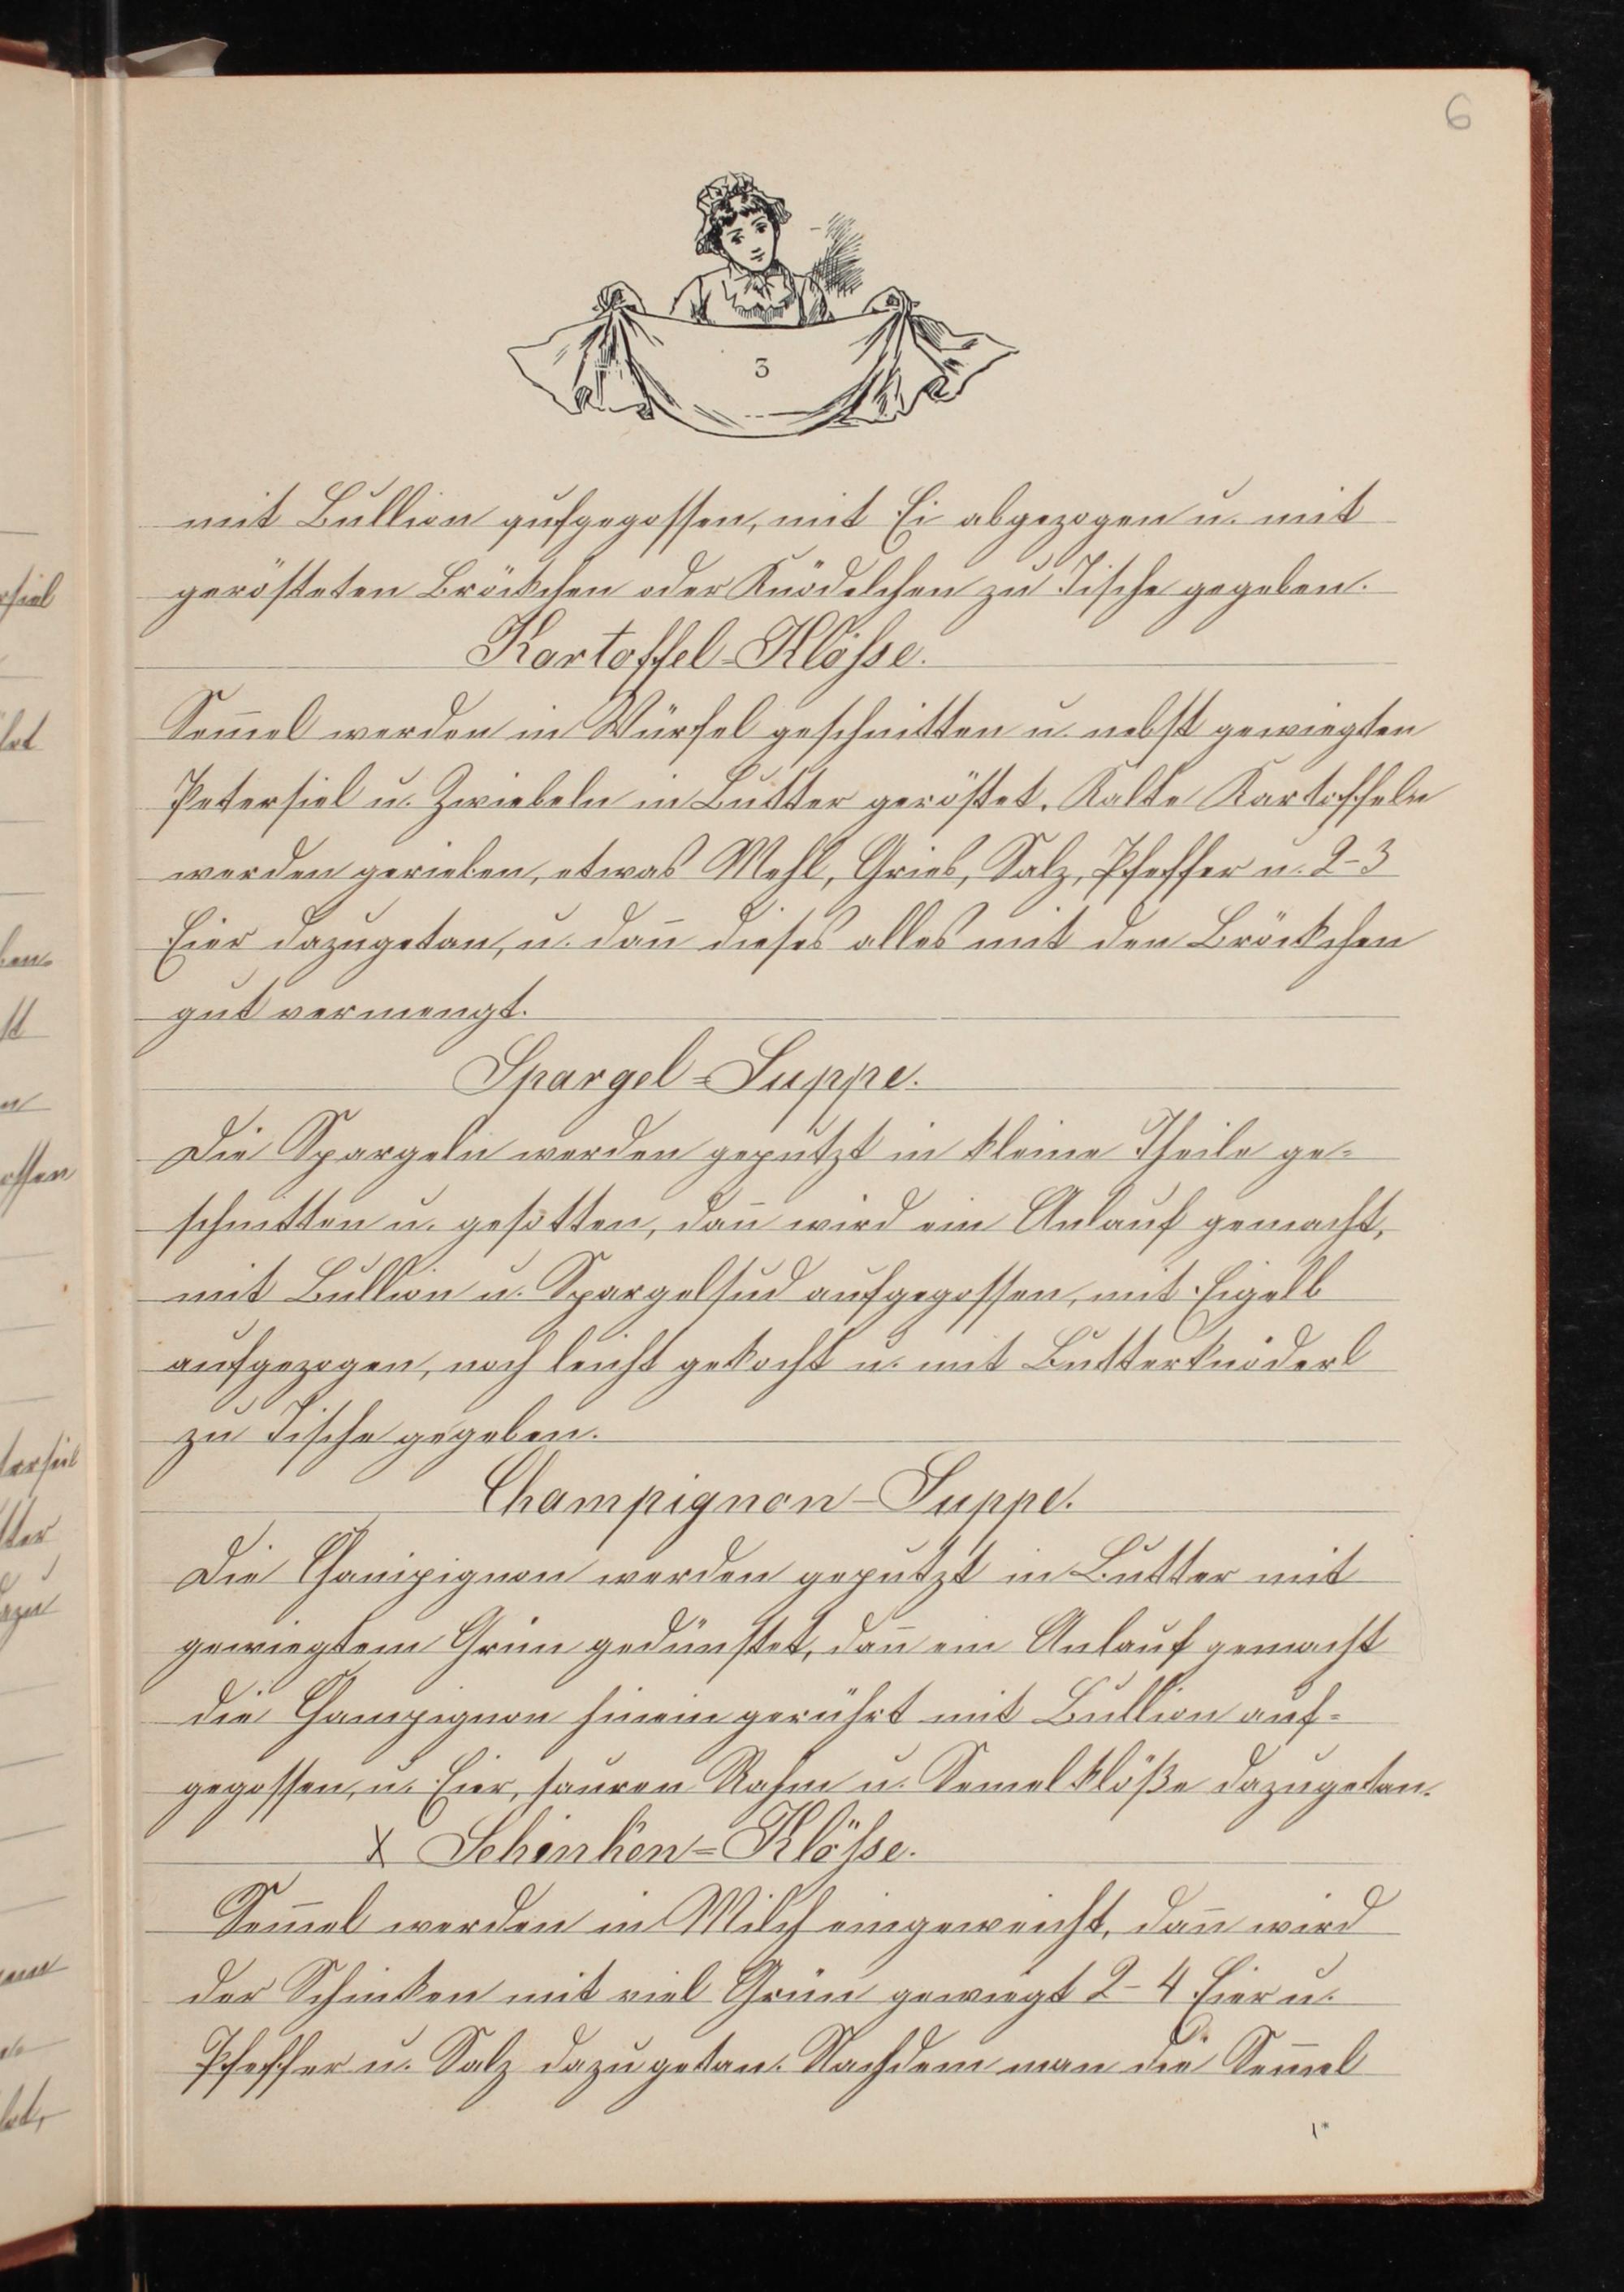 6
3
mit Bullion aufgegossen, mit Ei abgezogen u. mit
gerösteten Bröckchen oder Knödelchen zu Tische gegeben.
Kartoffel-Klösse.
Sem̅el werden in Würfel geschnitten u. nebst gewiegten
Petersiel u. Zwiebeln in Butter geröstet. Kalte Kartoffeln
werden gerieben, etwas Mehl, Gries, Salz, Pfeffer u. 2-3
Eier dazugetan, u. dan̅ dieses alles mit den Bröckchen
gut vermengt.
Spargel=Suppe.
Die Spargeln werden geputzt in kleine Theile ge=
schnitten u. gesotten, dan̅ wird ein Anlauf gemacht,
mit Bullion u. Spargelsud aufgegossen, mit Eigelb
aufgezogen, noch leicht gekocht u. mit Butterknöderl
zu Tische gegeben.
Champignon-Suppe.
Die Champignon werden geputzt in Butter mit
gewiegtem Grün gedünstet, dan̅ ein Anlauf gemacht
die Champignon hinein gerührt mit Bullion auf=
gegossen, u. Eier, sauren Rahm u. Semelklöße dazugetan.
x Schinken=Klösse.
Sem̅el werden in Milch eingeweicht, dan̅ wird
der Schinken mit viel Grün gewiegt 2-4 Eier u.
Pfeffer u. Salz dazu getan. Nachdem man die Sem̅el
1*